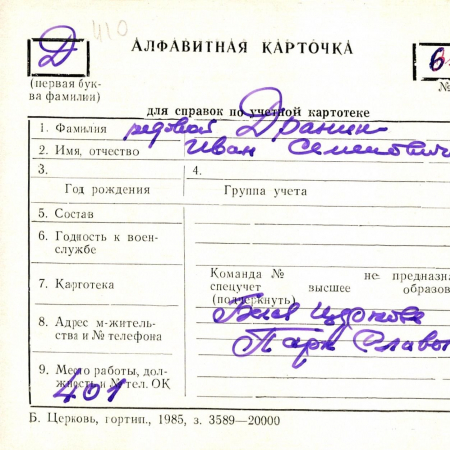 Д 410
АЛФАВИТНАЯ КАРТОЧКА
6
(первая бук-
ва фамилии)
№
для справок по учетной картотеке
1. Фамилия рядовой Дранин
2. Имя, отчество Иван Семенович
3.
4.
Год рождения
Группа учета
5. Состав
6. Годность к воен-
службе
7. Картотека
Команда № не предназна
спецучет высшее образов
(подчеркнуть)
8. Адрес м-житель-
ства и № телефона
Белая Церковь
Парк Славы
9. Место работы, дол-
жность и № тел. ОК
401
Б. Церковь, гортип., 1985, з. 3589—20000